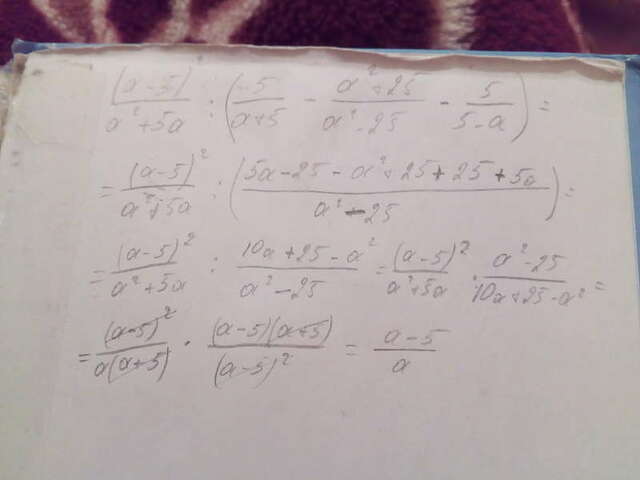 (a-5)/(a²+5a) : (5/(a+5) - (a²+25)/(a²-25) - 5/(5-a)) =
= (a-5)²/(a²+5a) : ((5a-25-a²+25+25+5a)/(a²-25)) =
= (a-5)²/(a²+5a) : (10a+25-a²)/(a²-25) = (a-5)²/(a²+5a) · (a²-25)/(10a+25-a²) =
= (a-5)²/(a(a+5)) · ((a-5)(a+5))/(a-5)² = (a-5)/a